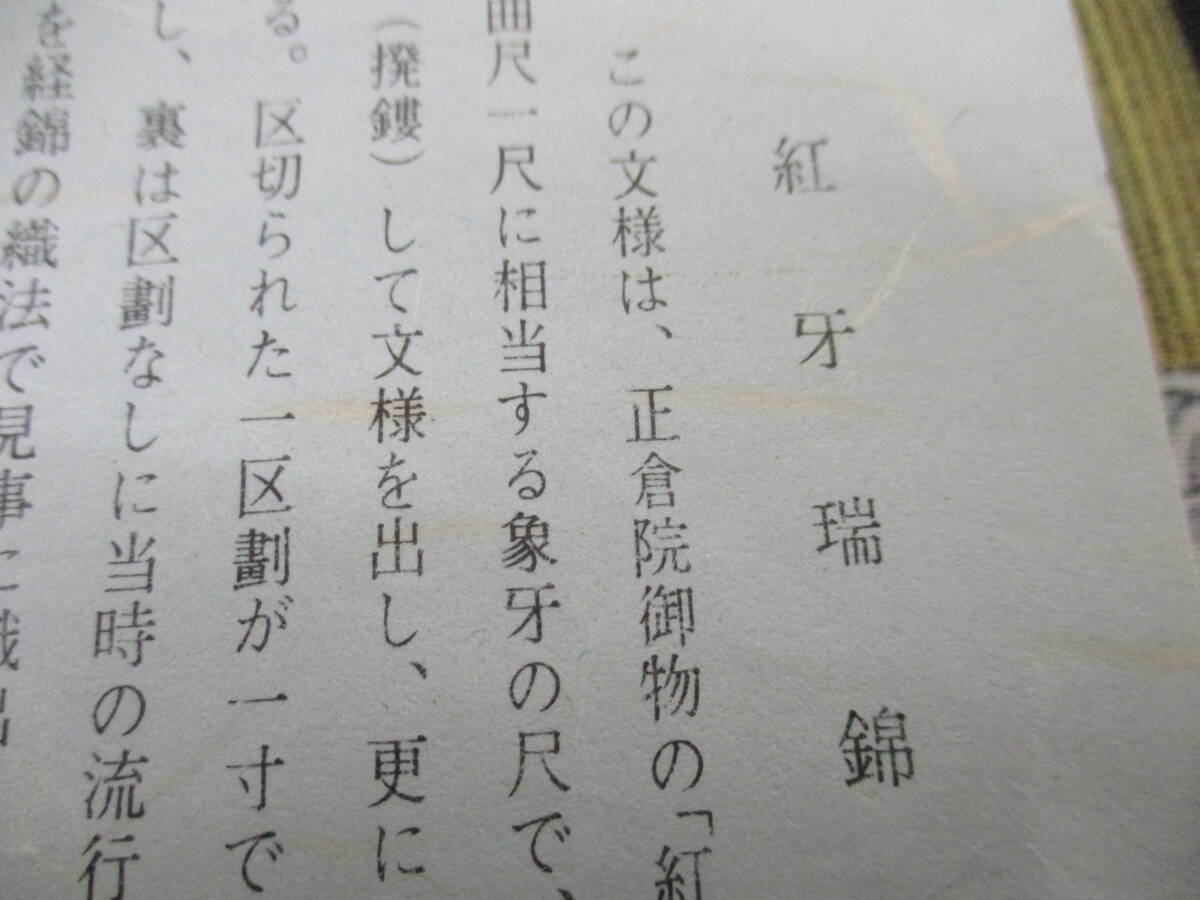 紅牙瑞錦
この文様は、正倉院御物の「紅
曲尺一尺に相当する象牙の尺で、
（撥鏤）して文様を出し、更に
る。区切られた一区劃が一寸で
し、裏は区劃なしに当時の流行
を経錦の織法で見事に織出